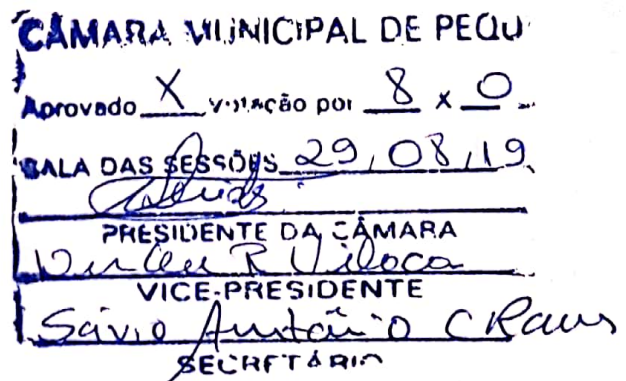 CÂMARA MUNICIPAL DE PEQU
Aprovado X votação por 8 x 0
SALA DAS SESSÕES 29/08/19
PRESIDENTE DA CÂMARA
R
VICE-PRESIDENTE
Sávio Antônio C
SECRETÁRIO